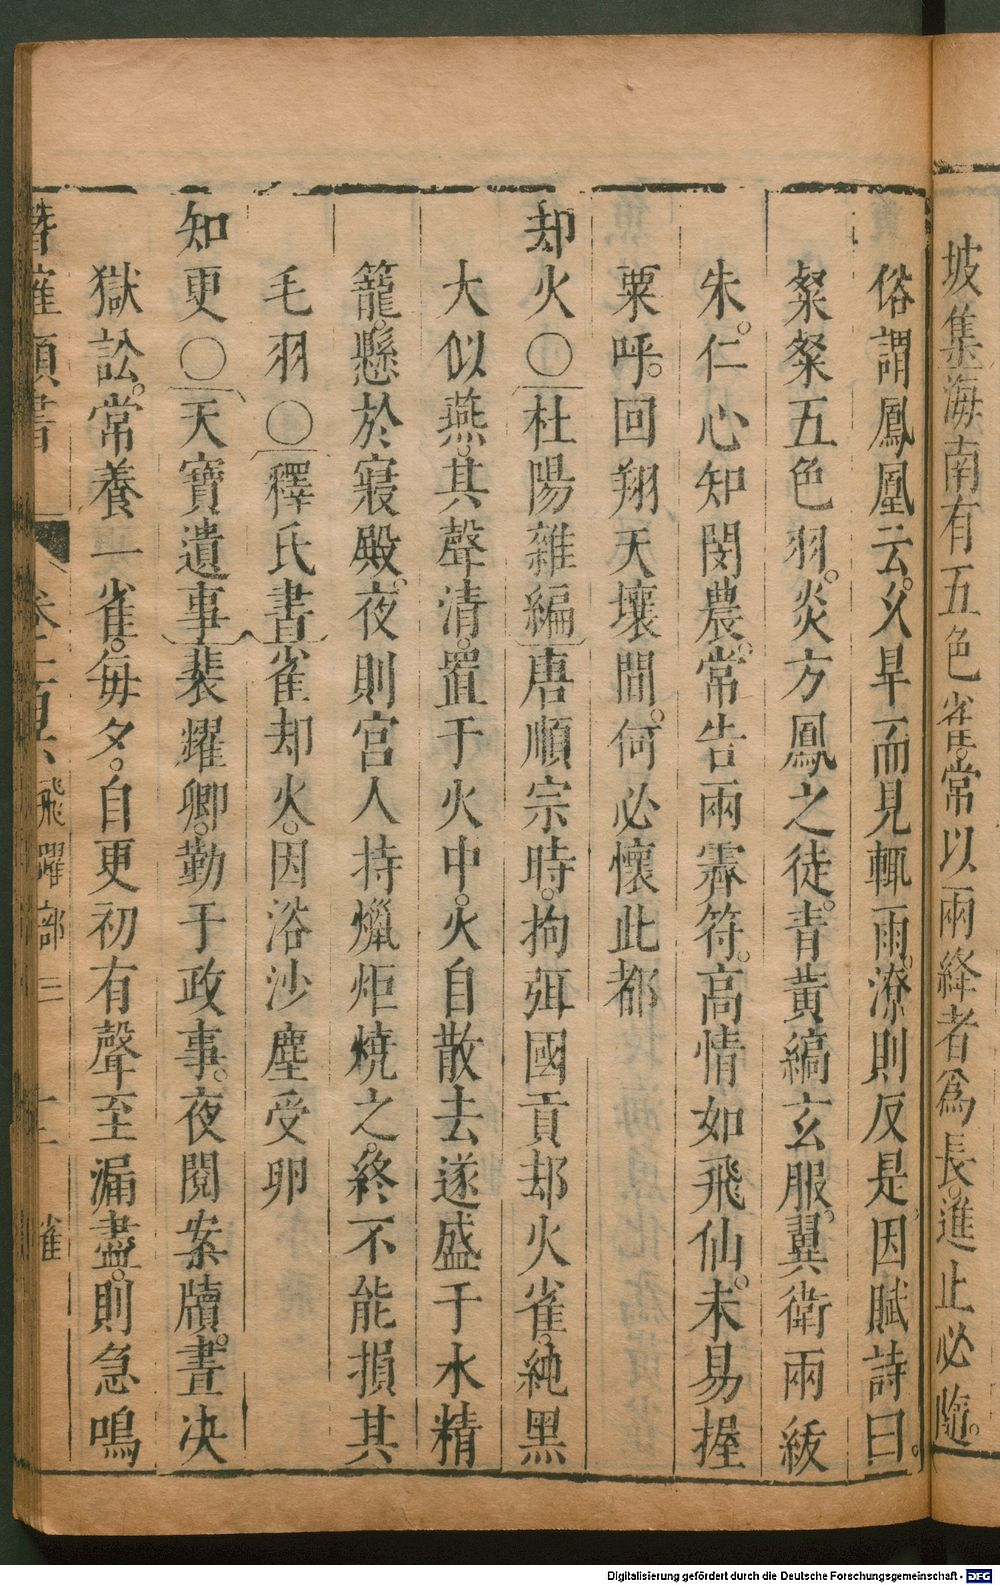 坡集海南有五色雀。常以兩絳者爲長。進止必隨。
俗謂鳳凰云。久旱而見輒雨。潦則反是。因賦詩曰。
粲粲五色羽。炎方鳳之徒。青黃縞玄服。翼衛兩紱
朱。仁心知閔農。常告雨霽符。高情如飛仙。未易握
粟呼。回翔天壤間。何必懷此都
却火〇杜陽雜編唐順宗時。拘弭國貢却火雀。純黑
大似燕。其聲清。置于火中。火自散去遂盛于水精
籠。懸於寢殿。夜則宮人持爉炬燒之。終不能損其
毛羽〇釋氏書雀却火。因浴沙塵受卵
知更〇天寶遺事裴耀卿。勤于政事。夜閱案牘。晝决
獄訟。常養一雀。每夕。自更初有聲至漏盡。則急鳴
潛確類書 卷 飛躍部三 十二 雀
Digitalisierung gefördert durch die Deutsche Forschungsgemeinschaft - DFG